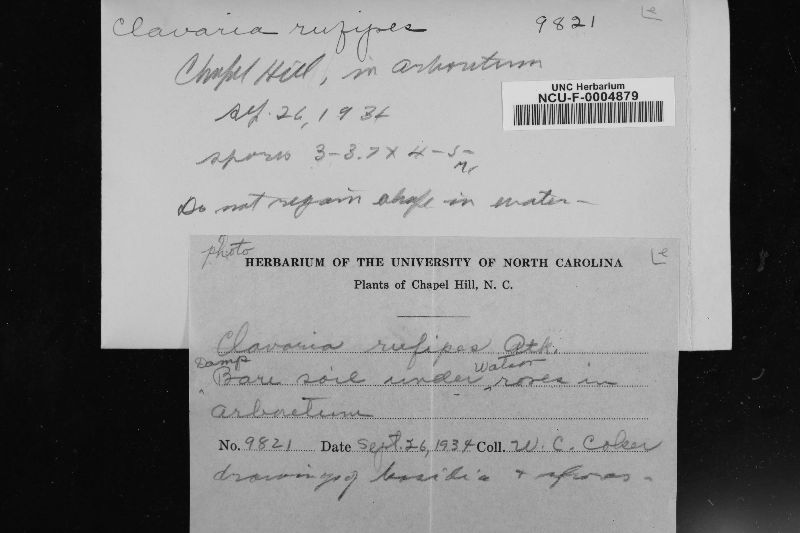 Clavaria rufipes 9821
e
Chapel Hill, in arboretum
UNC Herbarium
NCU-F-0004879
Sep. 26, 1934
spores 3-3.7 x 4-5
Do not regain shape in water-
photo
e
HERBARIUM OF THE UNIVERSITY OF NORTH CAROLINA
Plants of Chapel Hill, N. C.
Clavaria rufipes Atk.
Damp Bare soil under Watson roses in
arboretum
No. 9821 Date Sept. 26, 1934 Coll. W. C. Coker
drawings of basidia + spores-